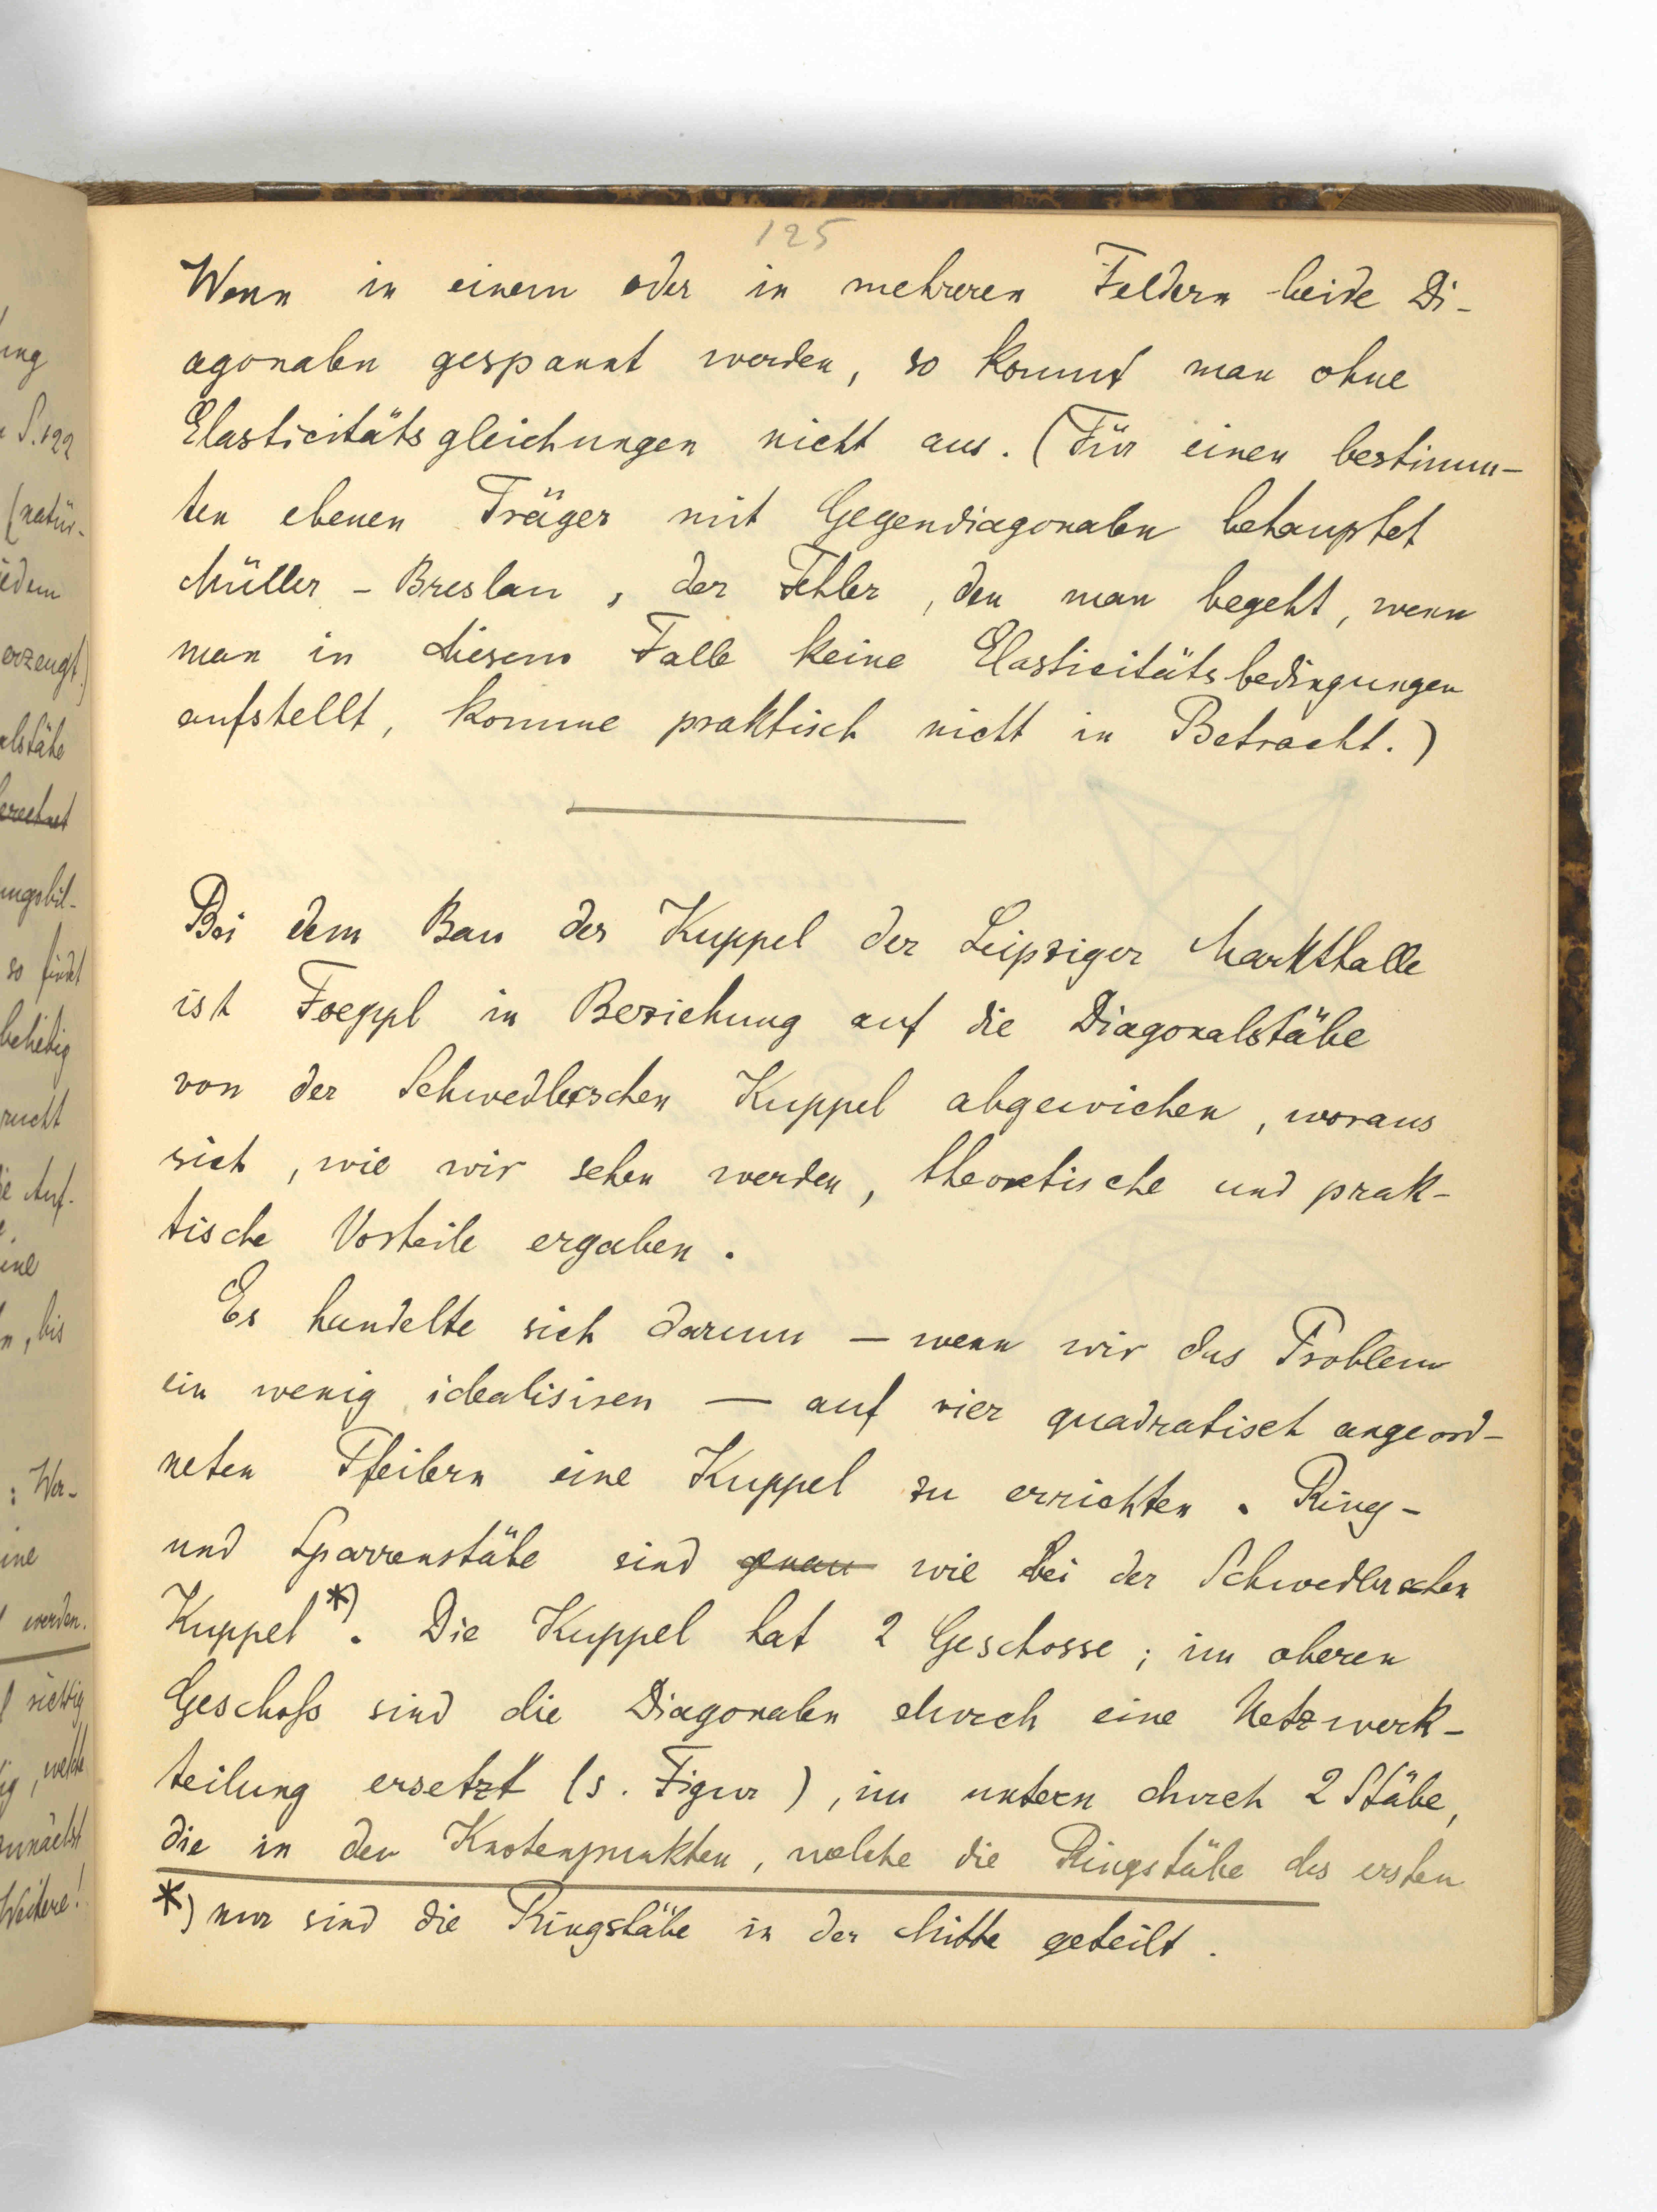 125
Wenn in einem oder in mehreren Feldern beide Di-
agonalen gespannt werden, so kommt man ohne
Elasticitätsgleichungen nicht aus. (Für einen bestimm-
ten ebenen Träger mit Gegendiagonalen behauptet
Müller - Breslau, der Fehler, den man begeht, wenn
man in diesem Falle keine Elasticitätsbedingungen
aufstellt, komme praktisch nicht in Betracht.)
Bei dem Bau der Kuppel der Leipziger Markthalle
ist Foeppl in Beziehung auf die Diagonalstäbe
von der Schwedlerschen Kuppel abgewichen, woraus
sich, wie wir sehen werden, theoretische und prak-
tische Vorteile ergaben.
Es handelte sich darum — wenn wir das Problem
ein wenig idealisiren — auf vier quadratisch angeord-
neten Pfeilern eine Kuppel zu errichten. Ring-
und Sparrenstäbe sind genau wie bei der Schwedlerschen
Kuppel*). Die Kuppel hat 2 Geschosse; im oberen
Geschoß sind die Diagonalen durch eine Netzwerk-
teilung ersetzt (s. Figur), im untern durch 2 Stäbe,
die in den Knotenpunkten, welche die Ringstäbe des ersten
*) nur sind die Ringstäbe in der Mitte geteilt.
ung
S. 122
(natür-
jedem
erzeugt.)
alstäbe
berechnet
ungsbil-
so findet
beliebig
Auf-
eine
, bis
: Wer-
eine
werden.
richtig
, welche
zunächst
Weitere!